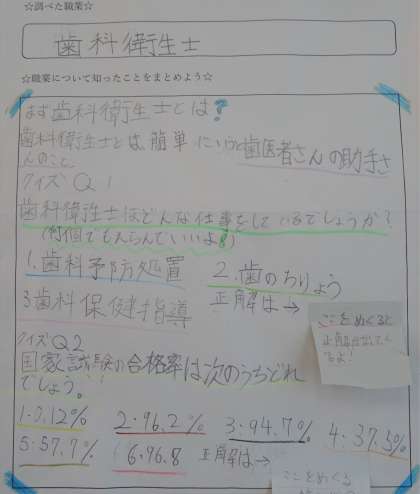 ☆調べた職業☆
歯科衛生士
☆職業について知ったことをまとめよう☆
まず歯科衛生士とは?
歯科衛生士とは、簡単にいうと歯医者さんの助手さ
んのこと。
クイズQ1
歯科衛生士はどんな仕事をしているでしょうか?
(何個でもえらんでいいよ!)
1.歯科予防処置
2.歯のちりょう
3歯科保健指導
正解は→
ここをめくると
正解が出てく
るよ!
クイズQ2
国家試験の合格率は次のうちどれ
でしょう。
2.96.2%
3.94.7%
4.37.5%
5.57.7%
6.96.8
正解は→
ここをめくる